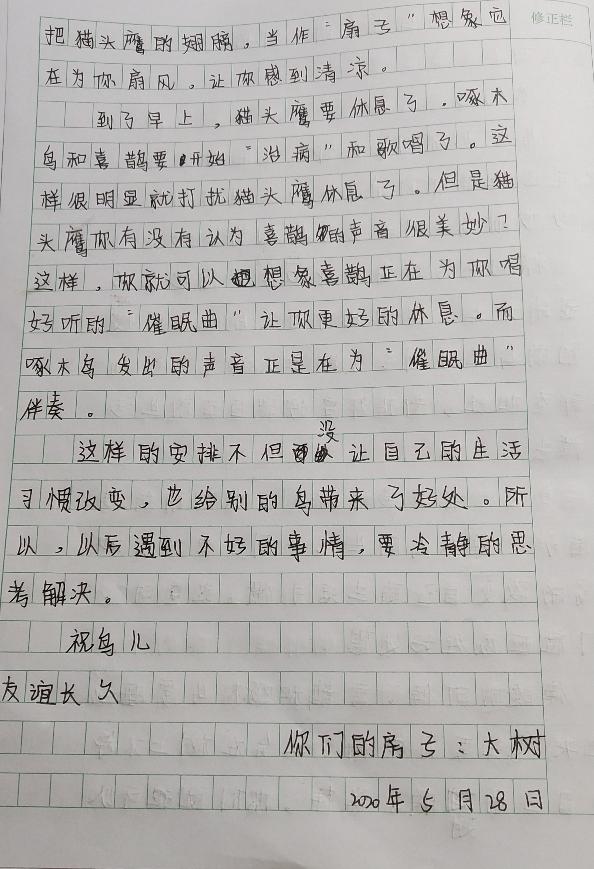 修正栏
把猫头鹰的翅膀，当作“扇子”想象它
在为你扇风，让你感到清凉。
到了早上，猫头鹰要休息了，啄木
鸟和喜鹊要开始“治病”和歌唱了。这
样很明显就打扰猫头鹰休息了。但是猫
头鹰你有没有认为喜鹊的声音很美妙？
这样，你就可以想象喜鹊正在为你唱
好听的“催眠曲”让你更好的休息。而
啄木鸟发出的声音正是在为“催眠曲”
伴奏。
这样的安排不但没让自己的生活
习惯改变，也给别的鸟带来了好处。所
以，以后遇到不好的事情，要冷静的思
考解决。
祝鸟儿
友谊长久
你们的房子：大树
2020年5月28日